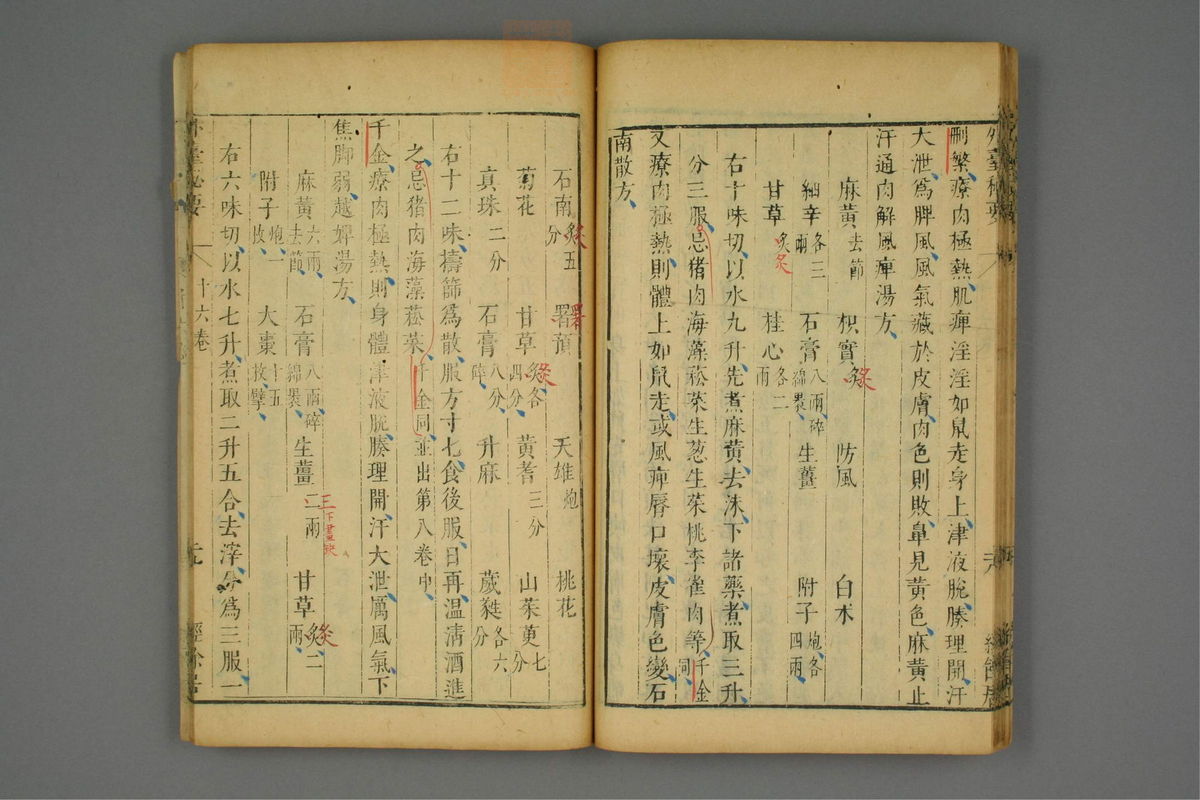 外臺秘要
刪繁療肉極熱肌痺淫淫如鼠走身上津液脫腠理開汗
大泄爲脾風風氣藏於皮膚肉色則敗鼻見黃色麻黃止
汗通肉解風痺湯方
麻黃去節 枳實炙 防風 白朮
細辛各三兩 石膏八兩碎綿裹 生薑 附子炮各四兩
甘草炙 桂心各二兩
右十味切以水九升先煮麻黃去沫下諸藥煮取三升
分三服忌猪肉海藻菘菜生葱生菜桃李雀肉等千金同
又療肉極熱則體上如鼠走或風痺唇口壞皮膚色變石
南散方
石南炙五分 署預 天雄炮 桃花
菊花 甘草炙各四分 黃耆三分 山茱萸七分
真珠二分 石膏八分碎 升麻 葳蕤各六分
右十二味擣篩爲散服方寸匕食後服日再溫清酒進
之忌猪肉海藻菘菜千金同並出第八卷中
千金療肉極熱則身體津液脫腠理開汗大泄厲風氣下
焦脚弱越婢湯方
麻黃六兩去節 石膏八兩碎綿裹 生薑二兩 甘草炙二兩
三下畫缺
附子炮一枚 大棗十五枚擘
右六味切以水七升煮取二升五合去滓分爲三服一
外臺秘要 十六卷 經餘居